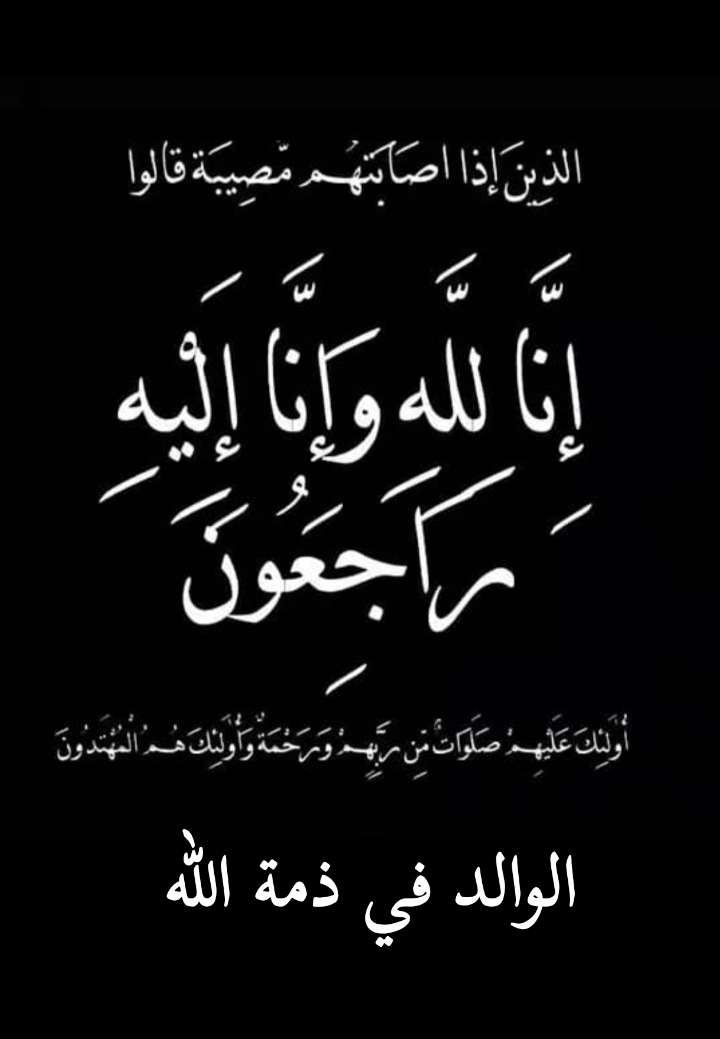 الذِينَ إذا اصَابَتهُم مّصِيبَة قالوا
إِنَّا لِلَّهِ وَإِنَّا إِلَيْهِ
رَاجِعُونَ
أُولَٰئِكَ عَلَيْهِمْ صَلَوَاتٌ مِّن رَّبِّهِمْ وَرَحْمَةٌ وَأُولَٰئِكَ هُمُ الْمُهْتَدُونَ
الوالد في ذمة الله